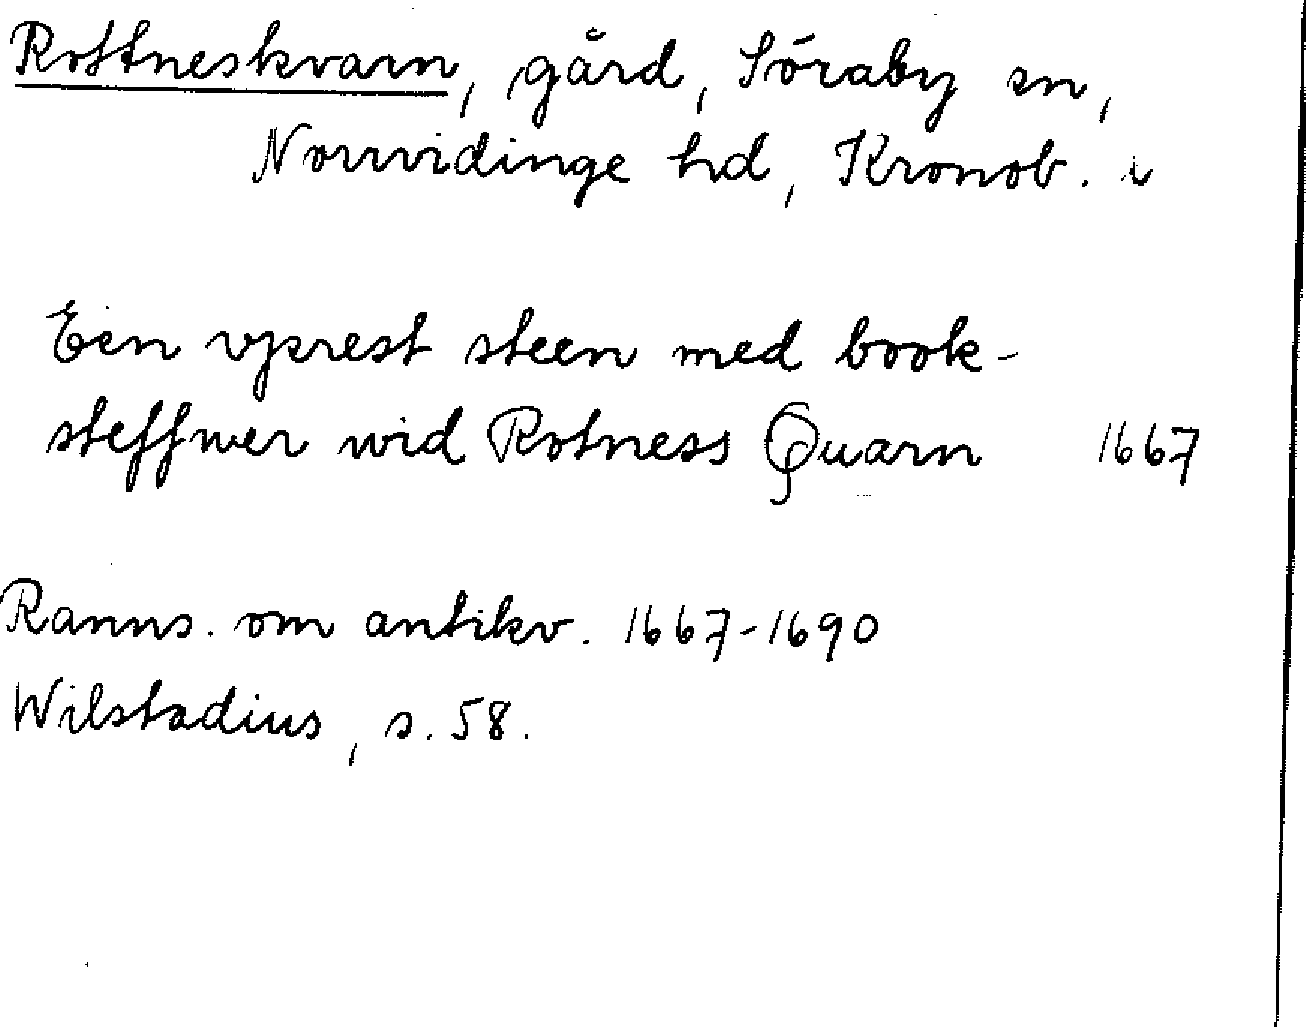 Rottneskvarn, gård, Söraby sn,
Norrvidinge hd, Kronob. l
Een vprest steen med book-
steffwer wid Rotness Quarn 1667
Ranns. om antikv. 1667-1690
Wilstadius, s. 58.